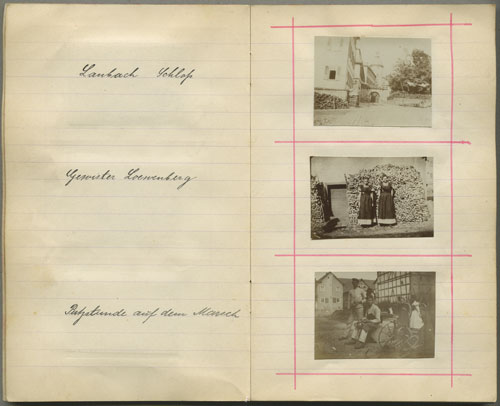 Laubach Schloß
Gewister Loewenberg
Putzstunde auf dem Marsch